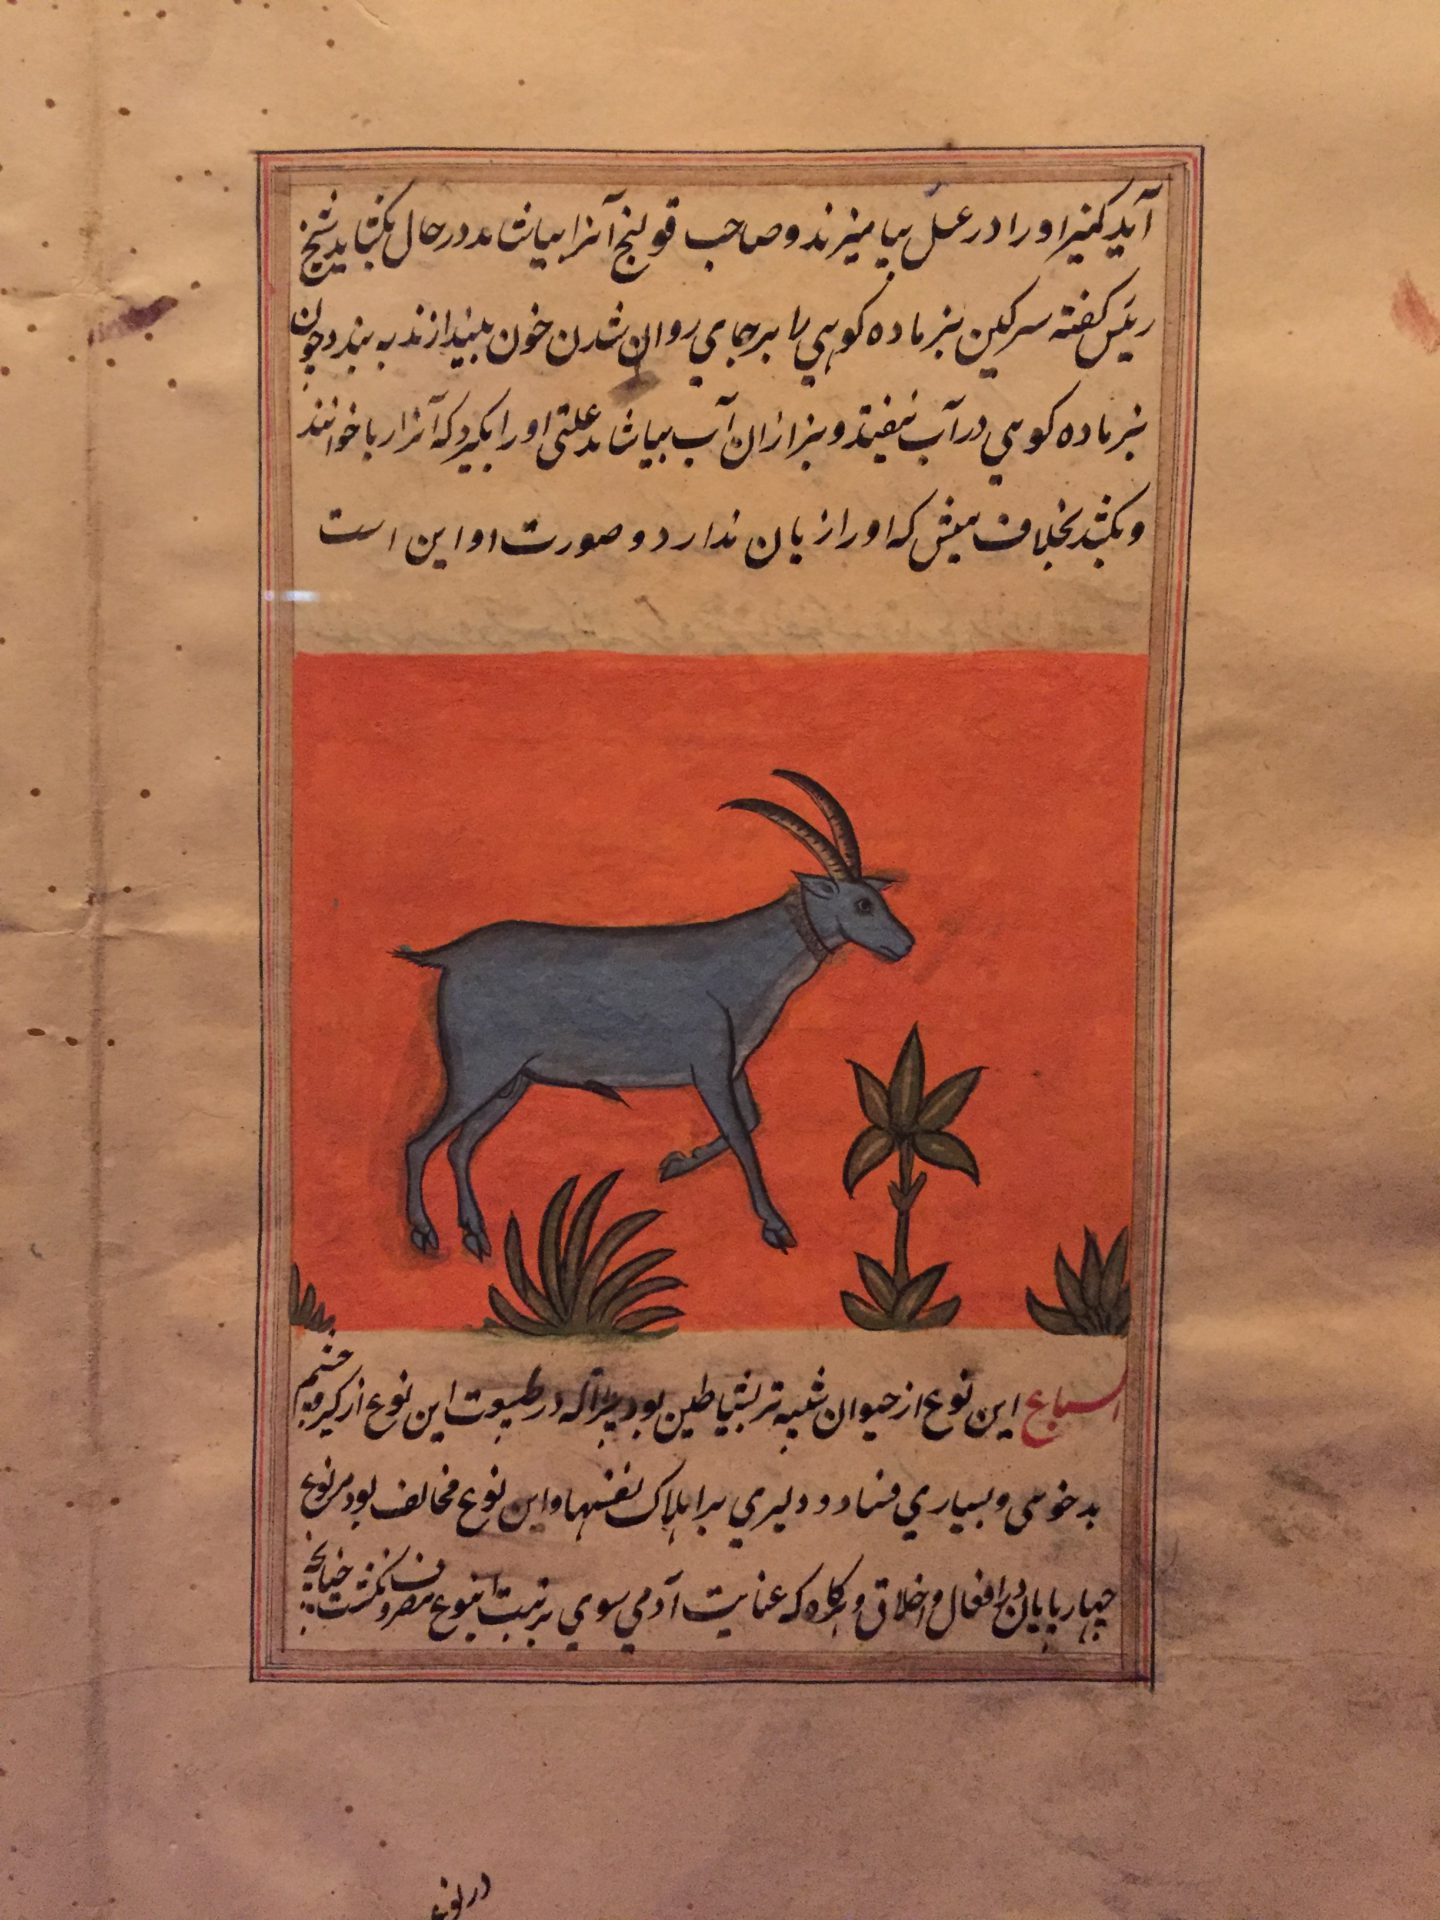 آید کمیز او را در عسل بیامیزند و صاحب قولنج آنرا بیاشامد در حال بکشاید شیخ
رئیس کفته سرکین بز ماده کوهی را بر جای روان شدن خون بیندازند به بندد و چون
بز ماده کوهی در آب بیفتد و بز ازان آب بیاشامد علتی او را بکیرد که آنرا ربا خوانند
و بکشد بخلاف میش که او را زیان ندارد و صورت او این است
السباع این نوع از حیوان شبیه تر بشیاطین بود چرا که در طبیعت این نوع از کبر و خشم
بدخوی و بسیاری فساد و دلیری بر اهلاک نفسها و این نوع مخالف بود مر نوع
چهارپایان را در افعال و اخلاق و هرکاه که عنایت آدمی سوی تربیت اینوع مصروف نکشت چنانچه
در نوع